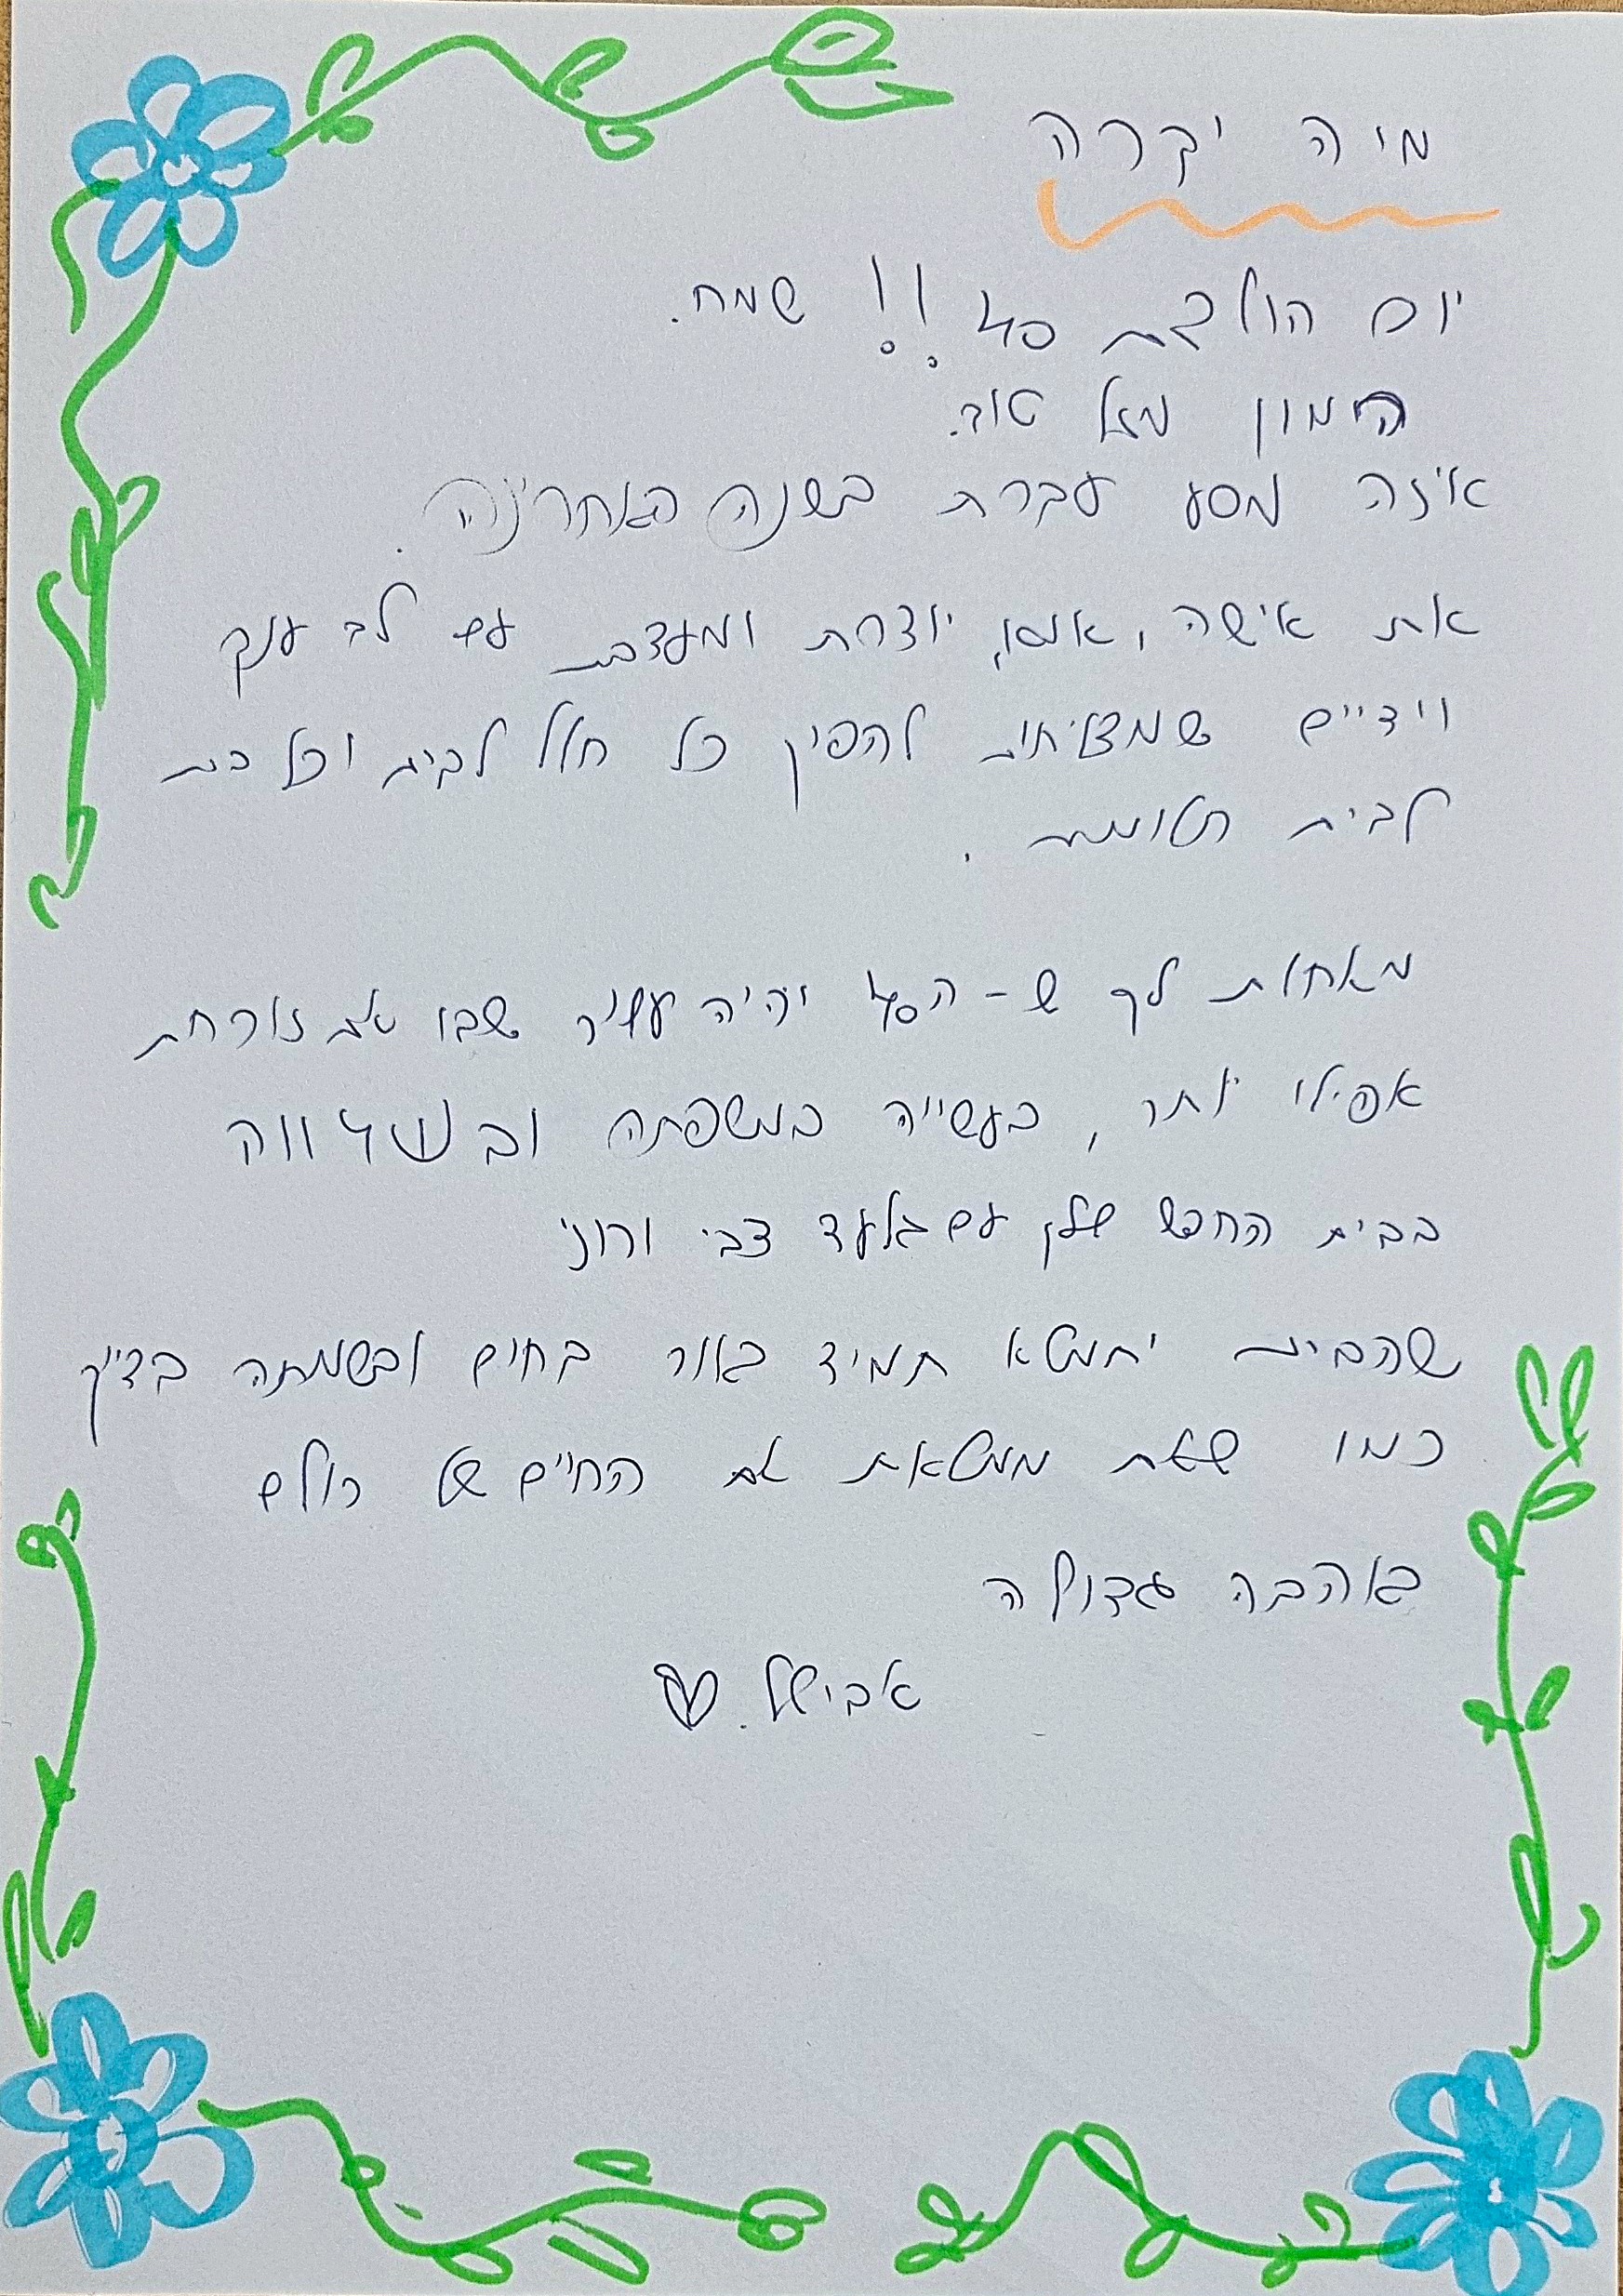 מיה יקרה
יום הולדת 40 !! שמח.
המון מזל טוב.
איזה מסע עברת בשנה האחרונה.
את אישה, אמא, יוצרת ומעצבת עם לב ענק
וידיים שמצליחות להפוך כל חלל לבית וכל בת
לבית
מאחלת לך ש-ה40 יהיה עשור שבו את זורחת
אפילו יותר, בעשייה במשפחה ובשלווה
בבית החדש שלך עם גלעד צבי ורוני
שהבית יתמלא תמיד באור בחום ובשמחה בדיוק
כמו שאת ממלאת את החיים של כולם
באהבה גדולה
אביטל.